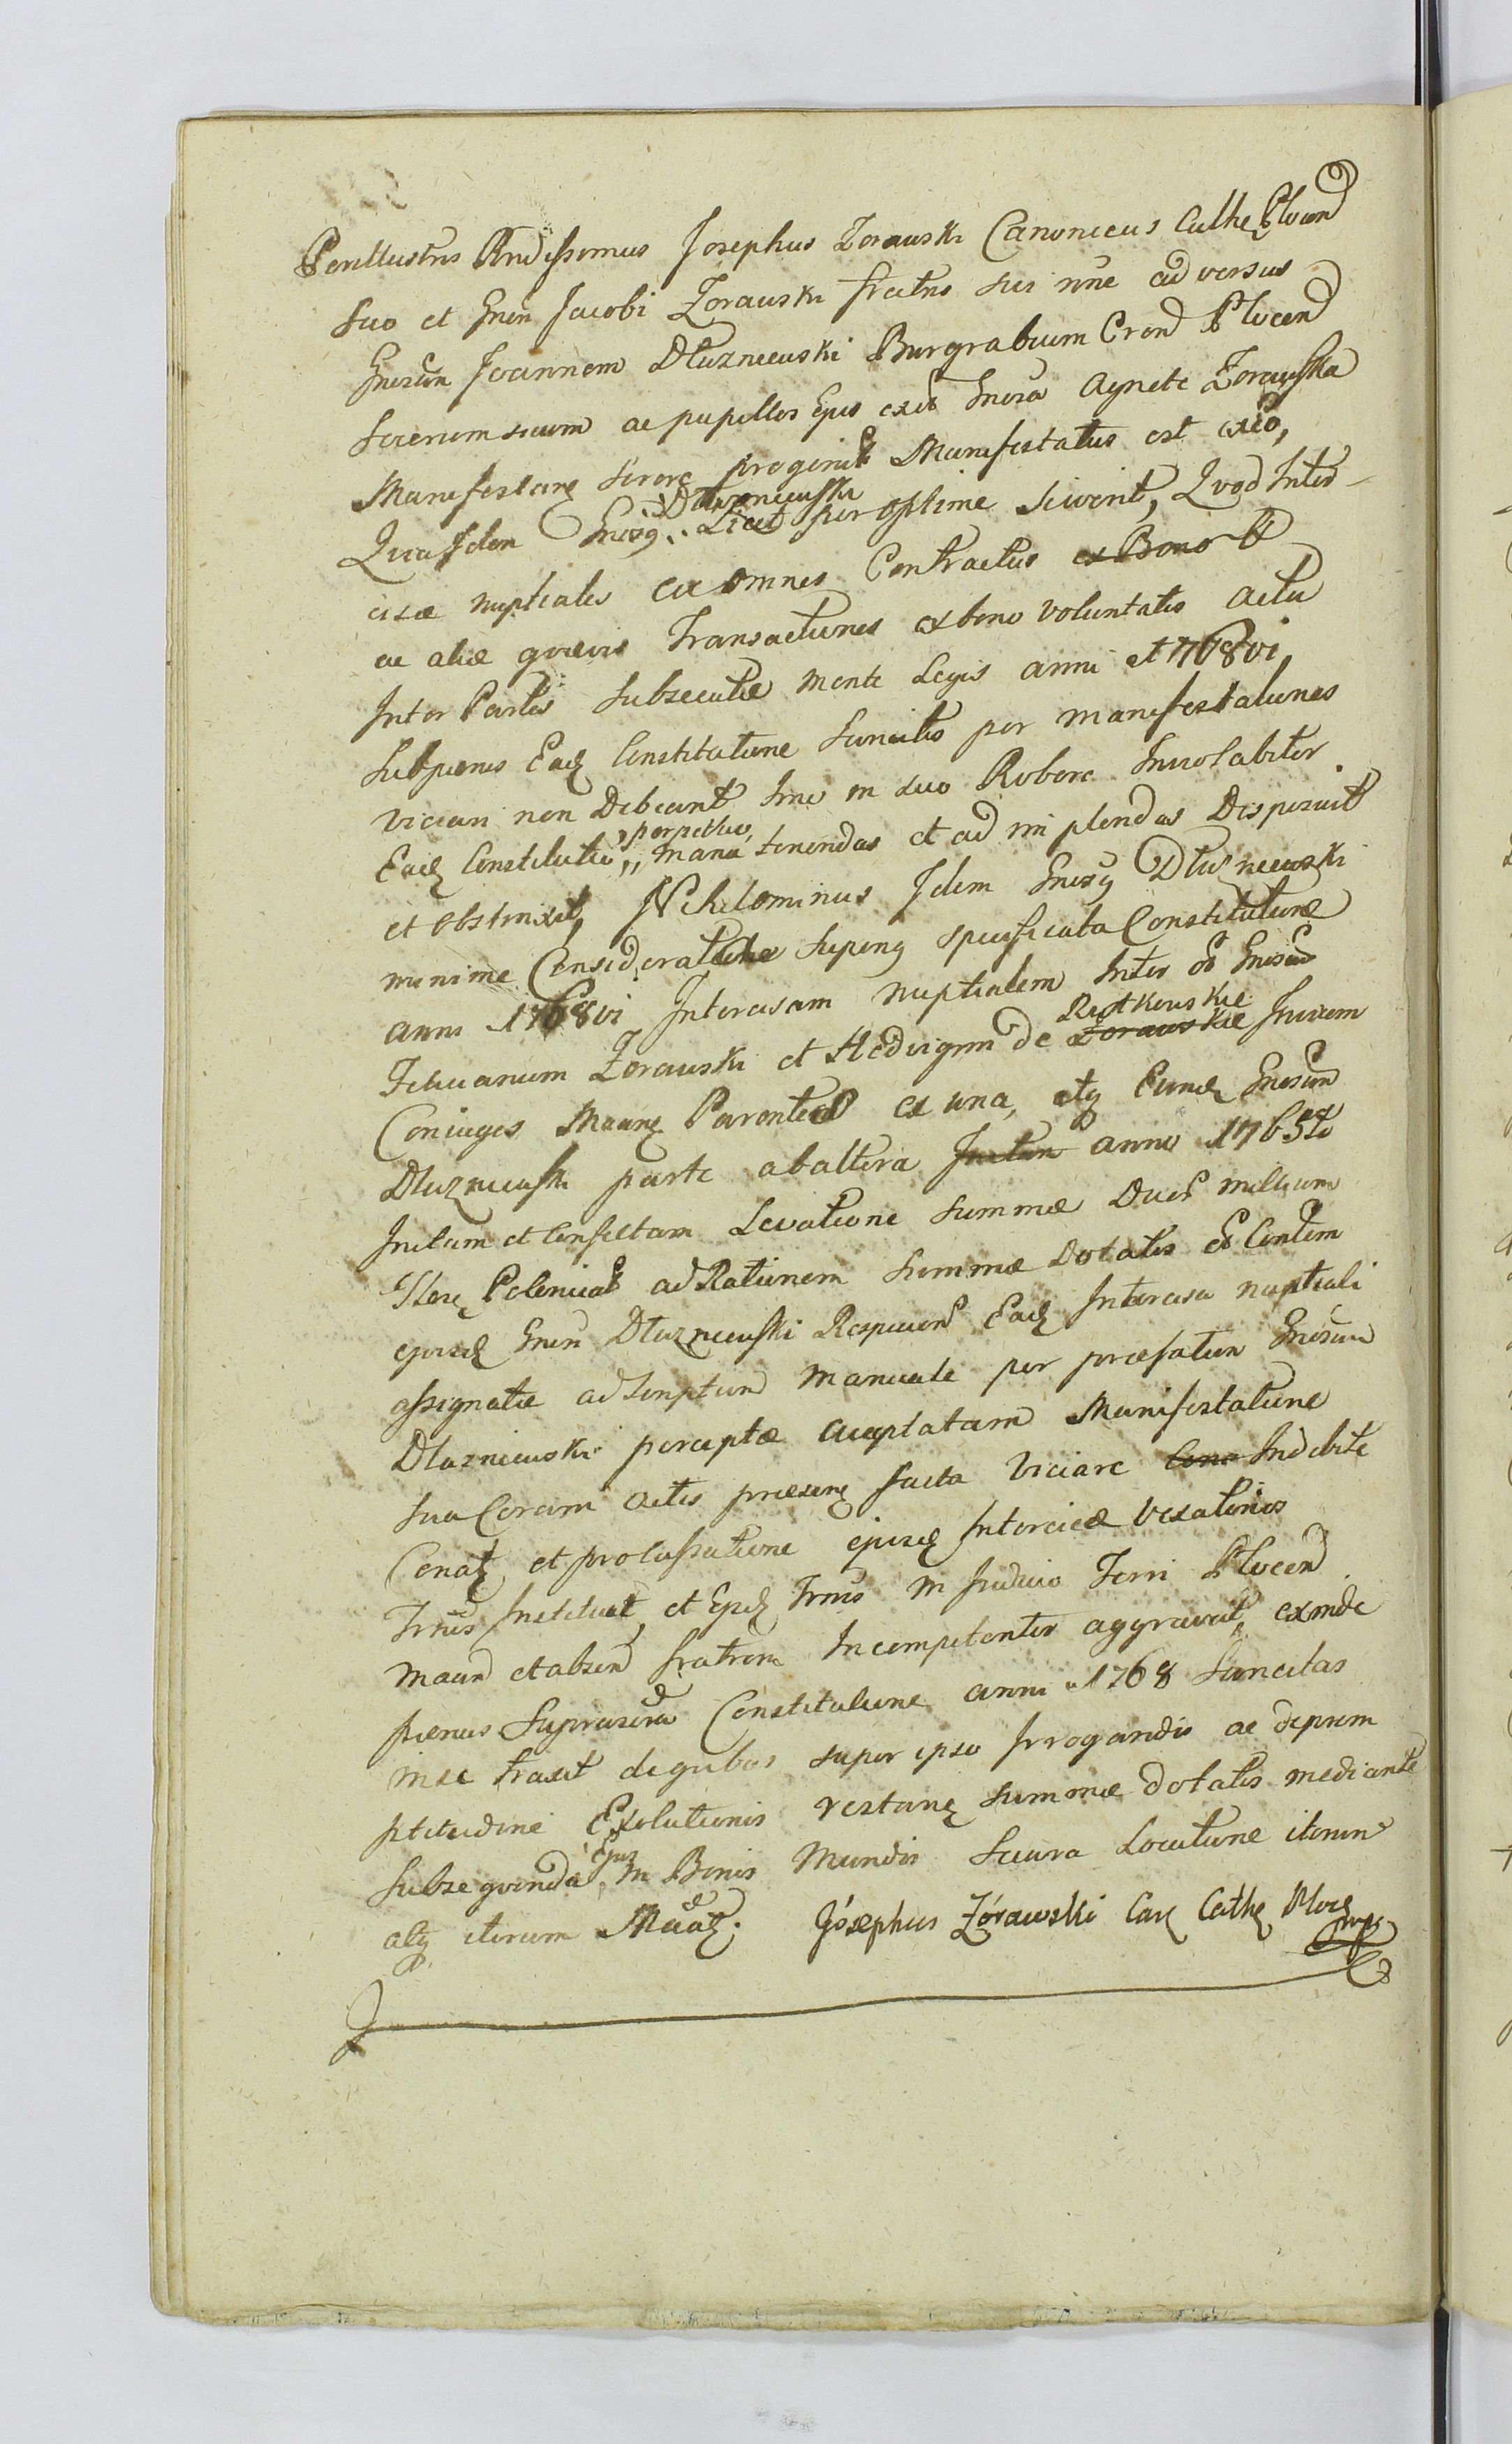 Perillustris Rndissimus Josephus Zorawski Canonicus Cathe Plocen
suo et Gnen Jacobi Zorawski fratris sui nne adversus
Gnosum Joannem Dłuzniewski Burgrabium Cren Plocen
Socerum suum ac pupillos Ejus ex Gnosa Agnete Zorawska
Manifestans sorore progenit Manifestatus est exeo,
Quia Idem Gnosus Dłuzniewski Licet per optime sciverit, Quod Inter-
cisæ nuptiales ac omnes Contractus ex Bono V
ac aliæ quævis Transactiones ex bono voluntatis actu
Inter Partes subsecutæ mente Legis anni 1768vi
sub penis Eadem Constitutione sancitis per manifestationes
viciari non Debeant Imo in suo Robore Inviolabiliter
Eadem Constitutio, perpetuo, manu tenendas et ad implendas Disposuit
et obstrinxit, Nihilominus Idem Gnosus Dłuzniewski
minime Consideratione superius specificata Constitutione
anni 1768vi Intercisam nuptialem Inter olim Gnosum
Zorawski et Hedvigim de Zorawskie Rostkowskie
Coniuges Manem Parentes ex una, atq Eundem Gnosum
Dłuzniewski parte ab altera Initam anno 1765to
Initam et Confectam Levatione summæ Duor millium
Flor Polonical ad Rationem summæ Dotalis
ejusdem Gnen Dłuzniewski Eadem Intercisa nuptiali
assignatæ ad scriptum manuale per præfatum Gnosum
Dłuzniewski perceptæ acceptatam Manifestatione
sua Coram actis præsen facta viciare Cona Indebite
Conat, et pro cassatione ejusdem Intercisæ vexatorios
Trnos Instituit, et Eisdem Trnis in Judicio Terri Plocen
Manen et absen fratrem Incompetenter aggravat, exinde
pænas Suprascra Constitutione anni 1768 Sancitas
in se traxit de quibus super ipso Irrogandis ac deprom
ptitudine Exolutionis restan summæ dotalis mediante
subsequenda Ejus in Bonis Mundis Locatione iterum
atq iterum Maat. Jósephus Zórawski Can Cathe Ploce
mpp